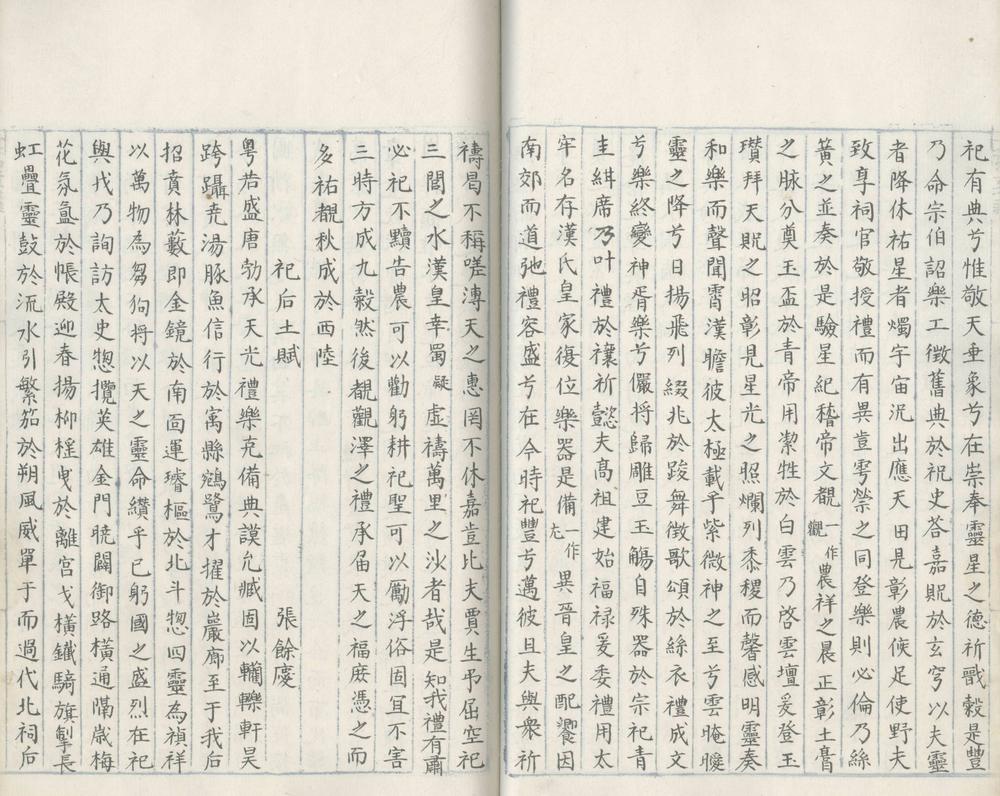 祀有典兮惟敬天垂象兮在崇奉靈星之德祈戩穀是豐
乃命宗伯詔樂工徵舊典於祝史荅嘉貺於玄穹以夫靈
者降休祐星者燭宇宙況出應天田見彰農候足使野夫
致享祠官敬授禮而有異豈雩禜之同登樂則必倫乃絲
簧之並奏於是驗星紀稽帝文覩一作觀農祥之晨正彰土膏
之脉分奠玉盃於青帝用潔牲於白雲乃啓雲壇爰登玉
瓚拜天貺之昭彰見星光之照爛列黍稷而馨感明靈奏
和樂而聲聞霄漢瞻彼太極載乎紫微神之至兮雲晻曖
靈之降兮日揚飛列綴兆於踆舞徵歌頌於絲衣禮成文
兮樂終變神胥樂兮儼将歸雕豆玉觴自殊器於宗祀青
圭緁席乃叶禮於禳祈懿夫髙祖建始福禄爰委禮用太
牢名存漢氏皇家復位樂器是備一作充異晉皇之配饗因
南郊而道弛禮容盛兮在今時祀豐兮邁彼且夫與衆祈
禱曷不稱嗟溥天之惠罔不休嘉豈比夫賈生弔屈空祀
三閭之水漢皇幸蜀疑虛禱萬里之沙者哉是知我禮有肅
必祀不黷告農可以勸躬耕祀聖可以勵浮俗固宜不害
三時方成九穀然後覩觀澤之禮承届天之福庻憑之而
多祐覩秋成於西陸
祀后土賦　張餘慶
粤若盛唐勃承天光禮樂克備典謨允臧固以轥轢軒昊
跨躡尭湯豚魚信行於寓縣鵷鷺才擢於巖廊至于我后
招賁林藪即金鏡於南面運璿樞於北斗惣四靈為禎祥
以萬物為芻狗将以天之靈命纉乎已躬國之盛烈在祀
與戎乃詢訪太史惣攬英雄金門曉闢御路橫通隔歳梅
花氛氳於帳殿迎春揚柳搖曵於離宮戈橫鐵騎旗掣長
虹疊靈鼓於流水引繁笳於朔風威單于而過代北祠后